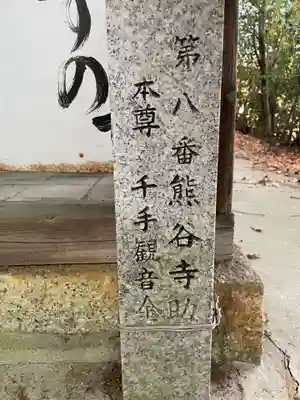 第八番熊谷寺
本尊千手観音
の